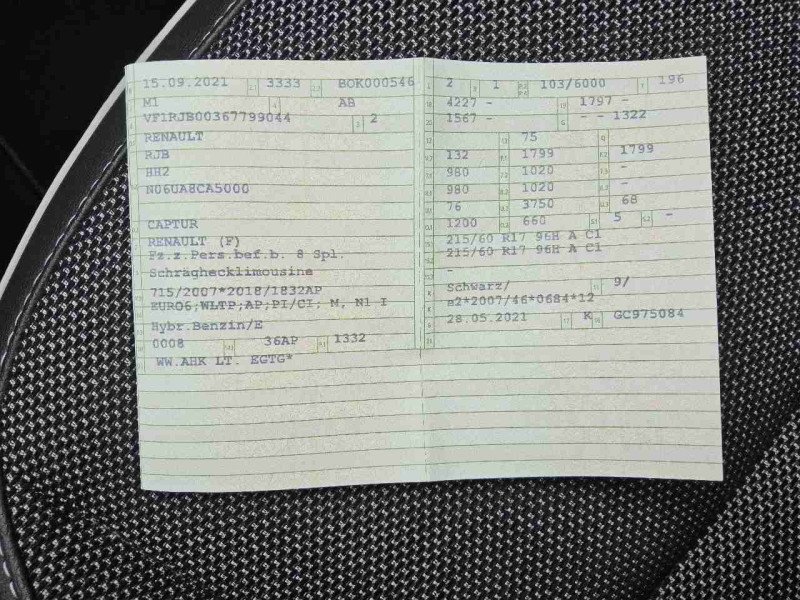 15.09.2021 3333 BOK000546
M1 AB
VF1RJB00367799044 2
RENAULT
RJB
HH2
N06UA8CA5000
CAPTUR
RENAULT (F)
Fz.z.Pers.bef.b. 8 Spl.
Schräghecklimousine
715/2007*2018/1832AP
EURO6;WLTP;AP;PI/CI; M, N1 I
Hybr.Benzin/E
0008 36AP 1332
WW.AHK LT. EGTG*
2 1 103/6000 196
4227 - 1797 -
1567 - - - 1322
75
132 1799 1799
980 1020 -
980 1020 -
76 3750 68
1200 660 5 -
215/60 R17 96H A C1
215/60 R17 96H A C1
-
Schwarz/ 9/
e2*2007/46*0684*12
28.05.2021 K GC975084